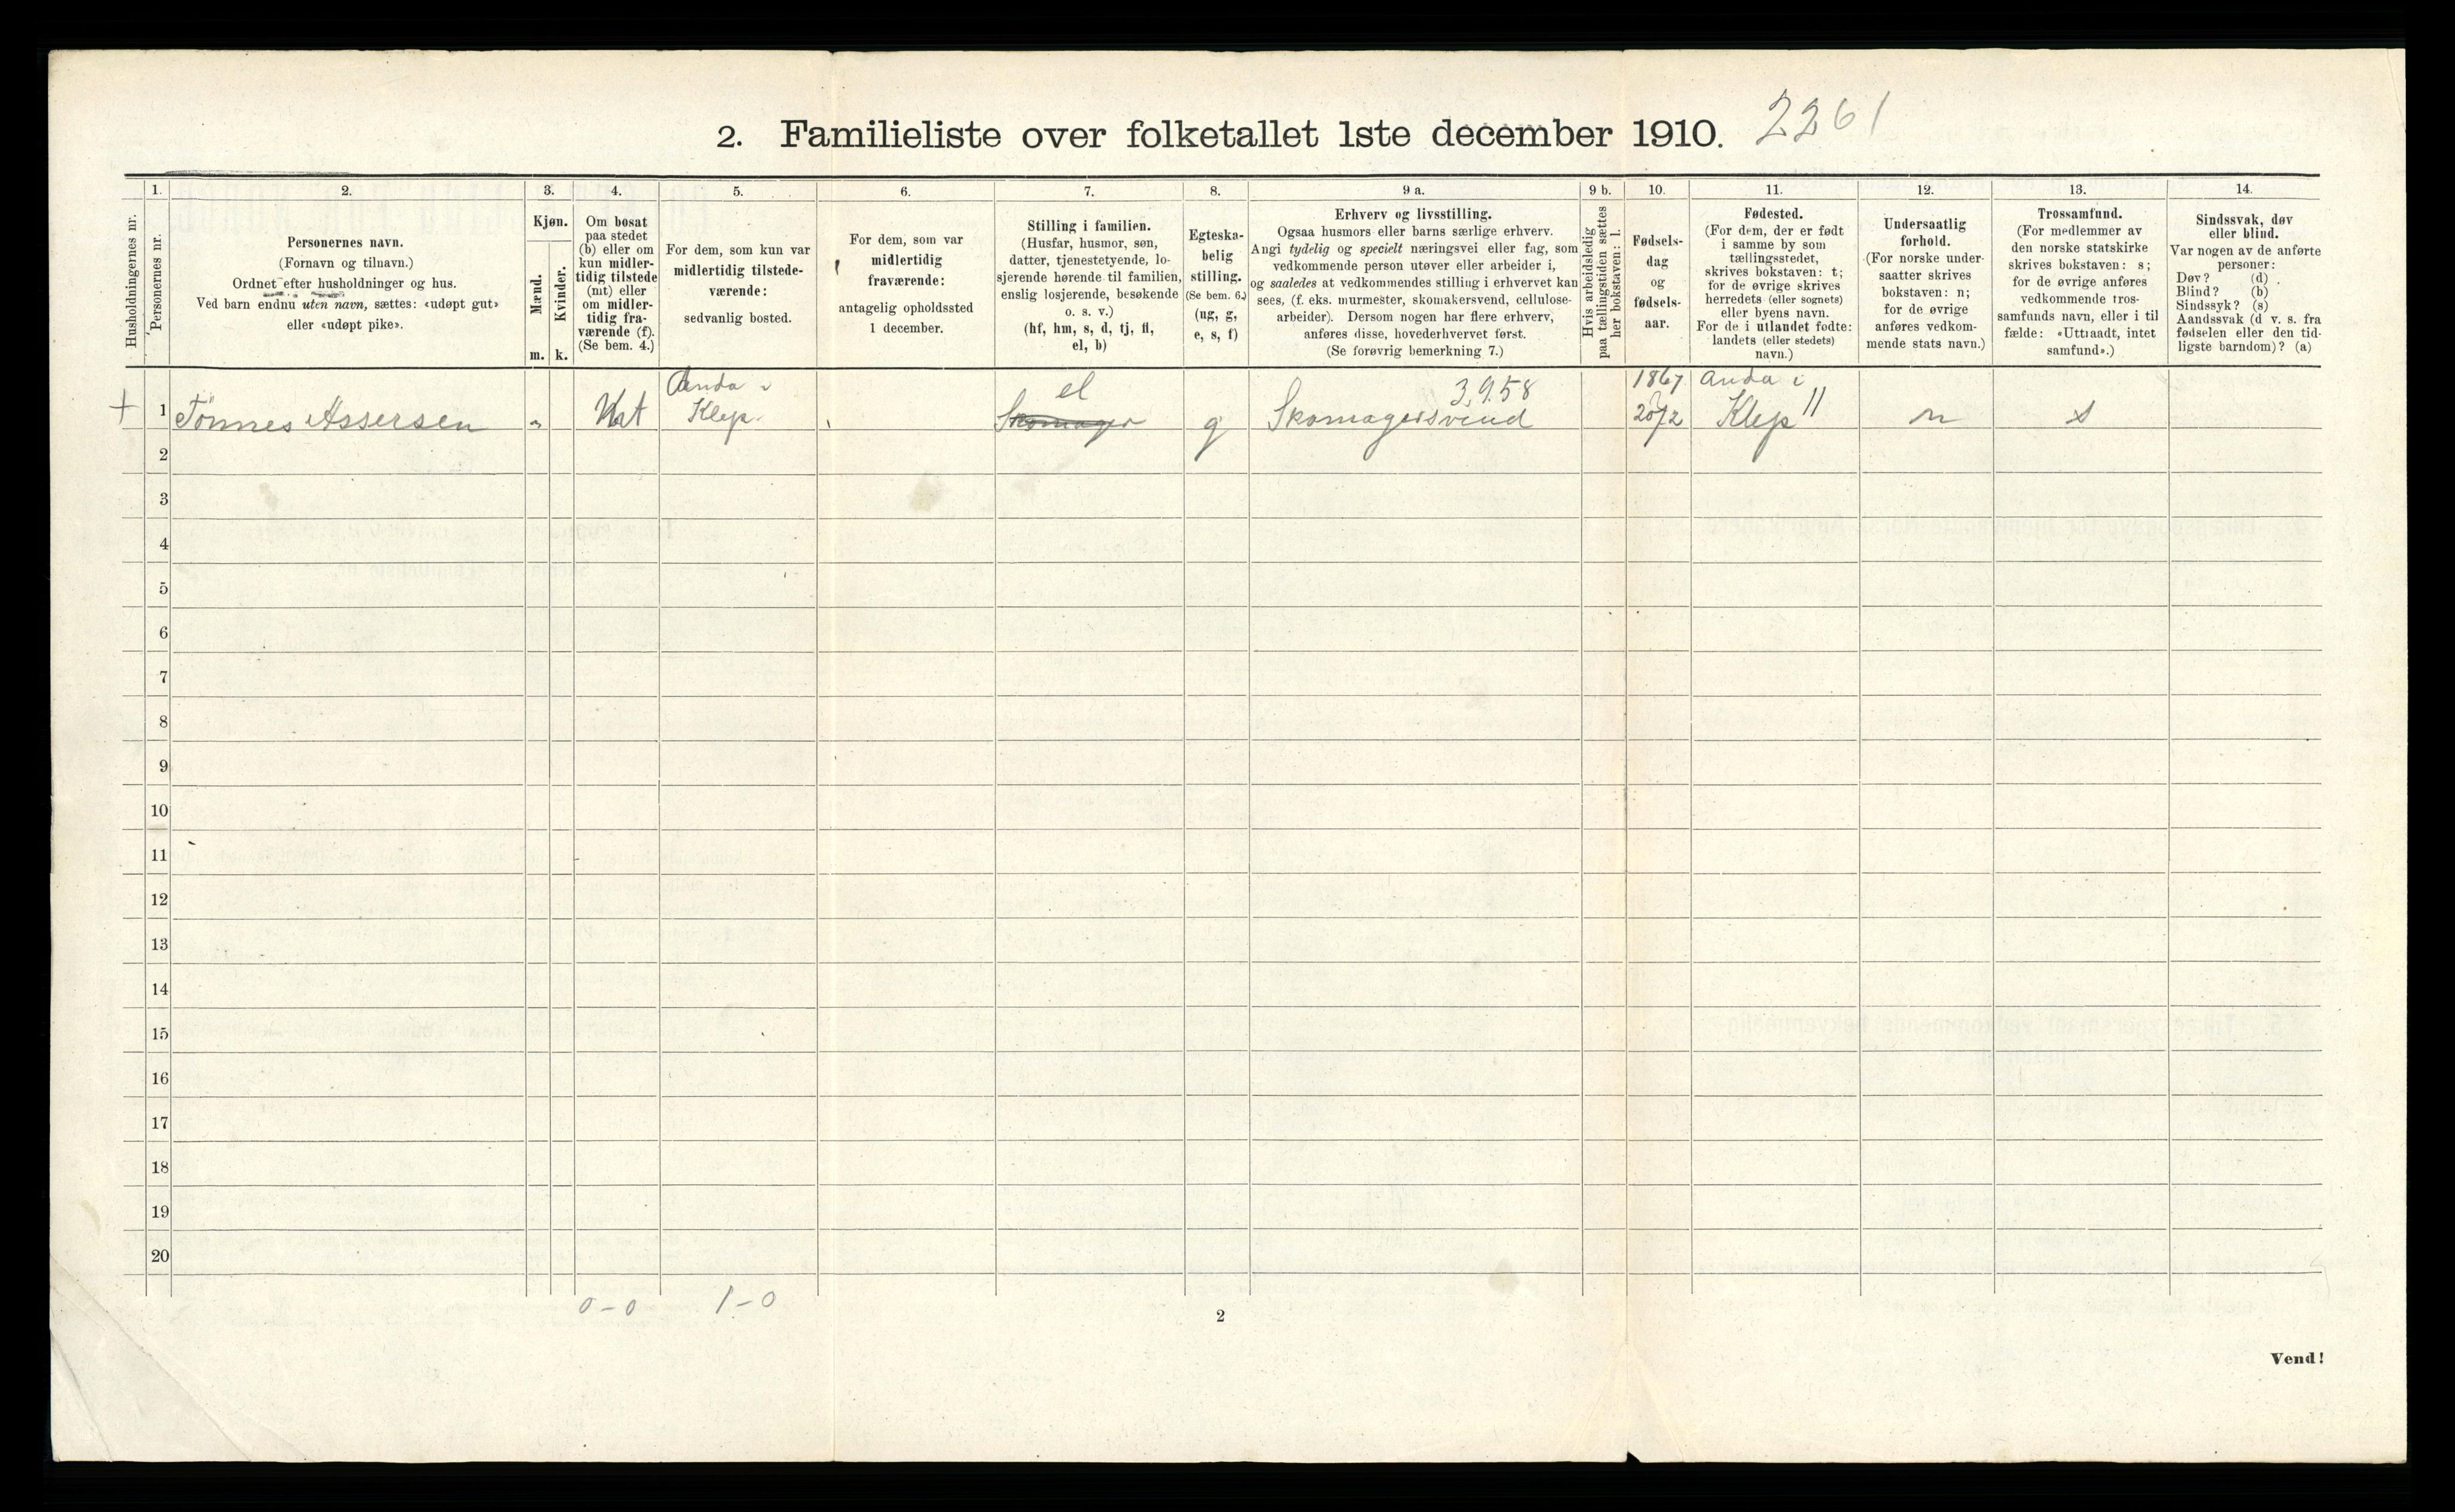 2. Familieliste over folketallet 1ste december 1910. 2261
Husholdningernes nr.
1.
Personernes nr.
2.
Personernes navn.
(Fornavn og tilnavn.)
Ordnet efter husholdninger og hus.
Ved barn endnu uten navn, sættes: «udøpt gut»
eller «udøpt pike».
3.
Kjøn.
Mænd.
m.
Kvinder.
k.
4.
Om bosat
paa stedet
(b) eller om
kun midler-
tidig tilstede
(mt) eller
om midler-
tidig fra-
værende (f).
(Se bem. 4.)
5.
For dem, som kun var
midlertidig tilstede-
værende:
sedvanlig bosted.
6.
For dem, som var
midlertidig
fraværende:
antagelig opholdssted
1 december.
7.
Stilling i familien.
(Husfar, husmor, søn,
datter, tjenestetyende, lo-
sjerende hørende til familien,
enslig losjerende, besøkende
o. s. v.)
(hf, hm, s, d, tj, fl,
el, b)
8.
Egteska-
belig
stilling.
(Se bem. 6.)
(ug, g,
e, s, f)
9 a.
Erhverv og livsstilling.
Ogsaa husmors eller barns særlige erhverv.
Angi tydelig og specielt næringsvei eller fag, som
vedkommende person utøver eller arbeider i,
og saaledes at vedkommendes stilling i erhvervet kan
sees, (f. eks. murmester, skomakersvend, cellulose-
arbeider). Dersom nogen har flere erhverv,
anføres disse, hovederhvervet først.
(Se forøvrig bemerkning 7.)
9 b.
Hvis arbeidsledig
paa tællingstiden sættes
her bokstaven: l.
10.
Fødsels-
dag
og
fødsels-
aar.
11.
Fødested.
(For dem, der er født
i samme by som
tællingsstedet,
skrives bokstaven: t;
for de øvrige skrives
herredets (eller sognets)
eller byens navn.
For de i utlandet fødte:
landets (eller stedets)
navn.)
12.
Undersaatlig
forhold.
(For norske under-
saatter skrives
bokstaven: n;
for de øvrige
anføres vedkom-
mende stats navn.)
13.
Trossamfund.
(For medlemmer av
den norske statskirke
skrives bokstaven: s;
for de øvrige anføres
vedkommende tros-
samfunds navn, eller i til
fælde: «Uttraadt, intet
samfund».)
14.
Sindssvak, døv
eller blind.
Var nogen av de anførte
personer:
Døv? (d)
Blind? (b)
Sindssyk? (s)
Aandssvak (d v. s. fra
fødselen eller den tid-
ligste barndom)? (a)
Anda i el 3,958 1867 Anda i
+ 1 Tönnes Assersen Mt Klep. Skomager g Skomagersvend 20/2 Klep 11 n s
2
3
4
5
6
7
8
9
10
11
12
13
14
15
16
17
18
19
20
0-0 1-0
2
Vend!